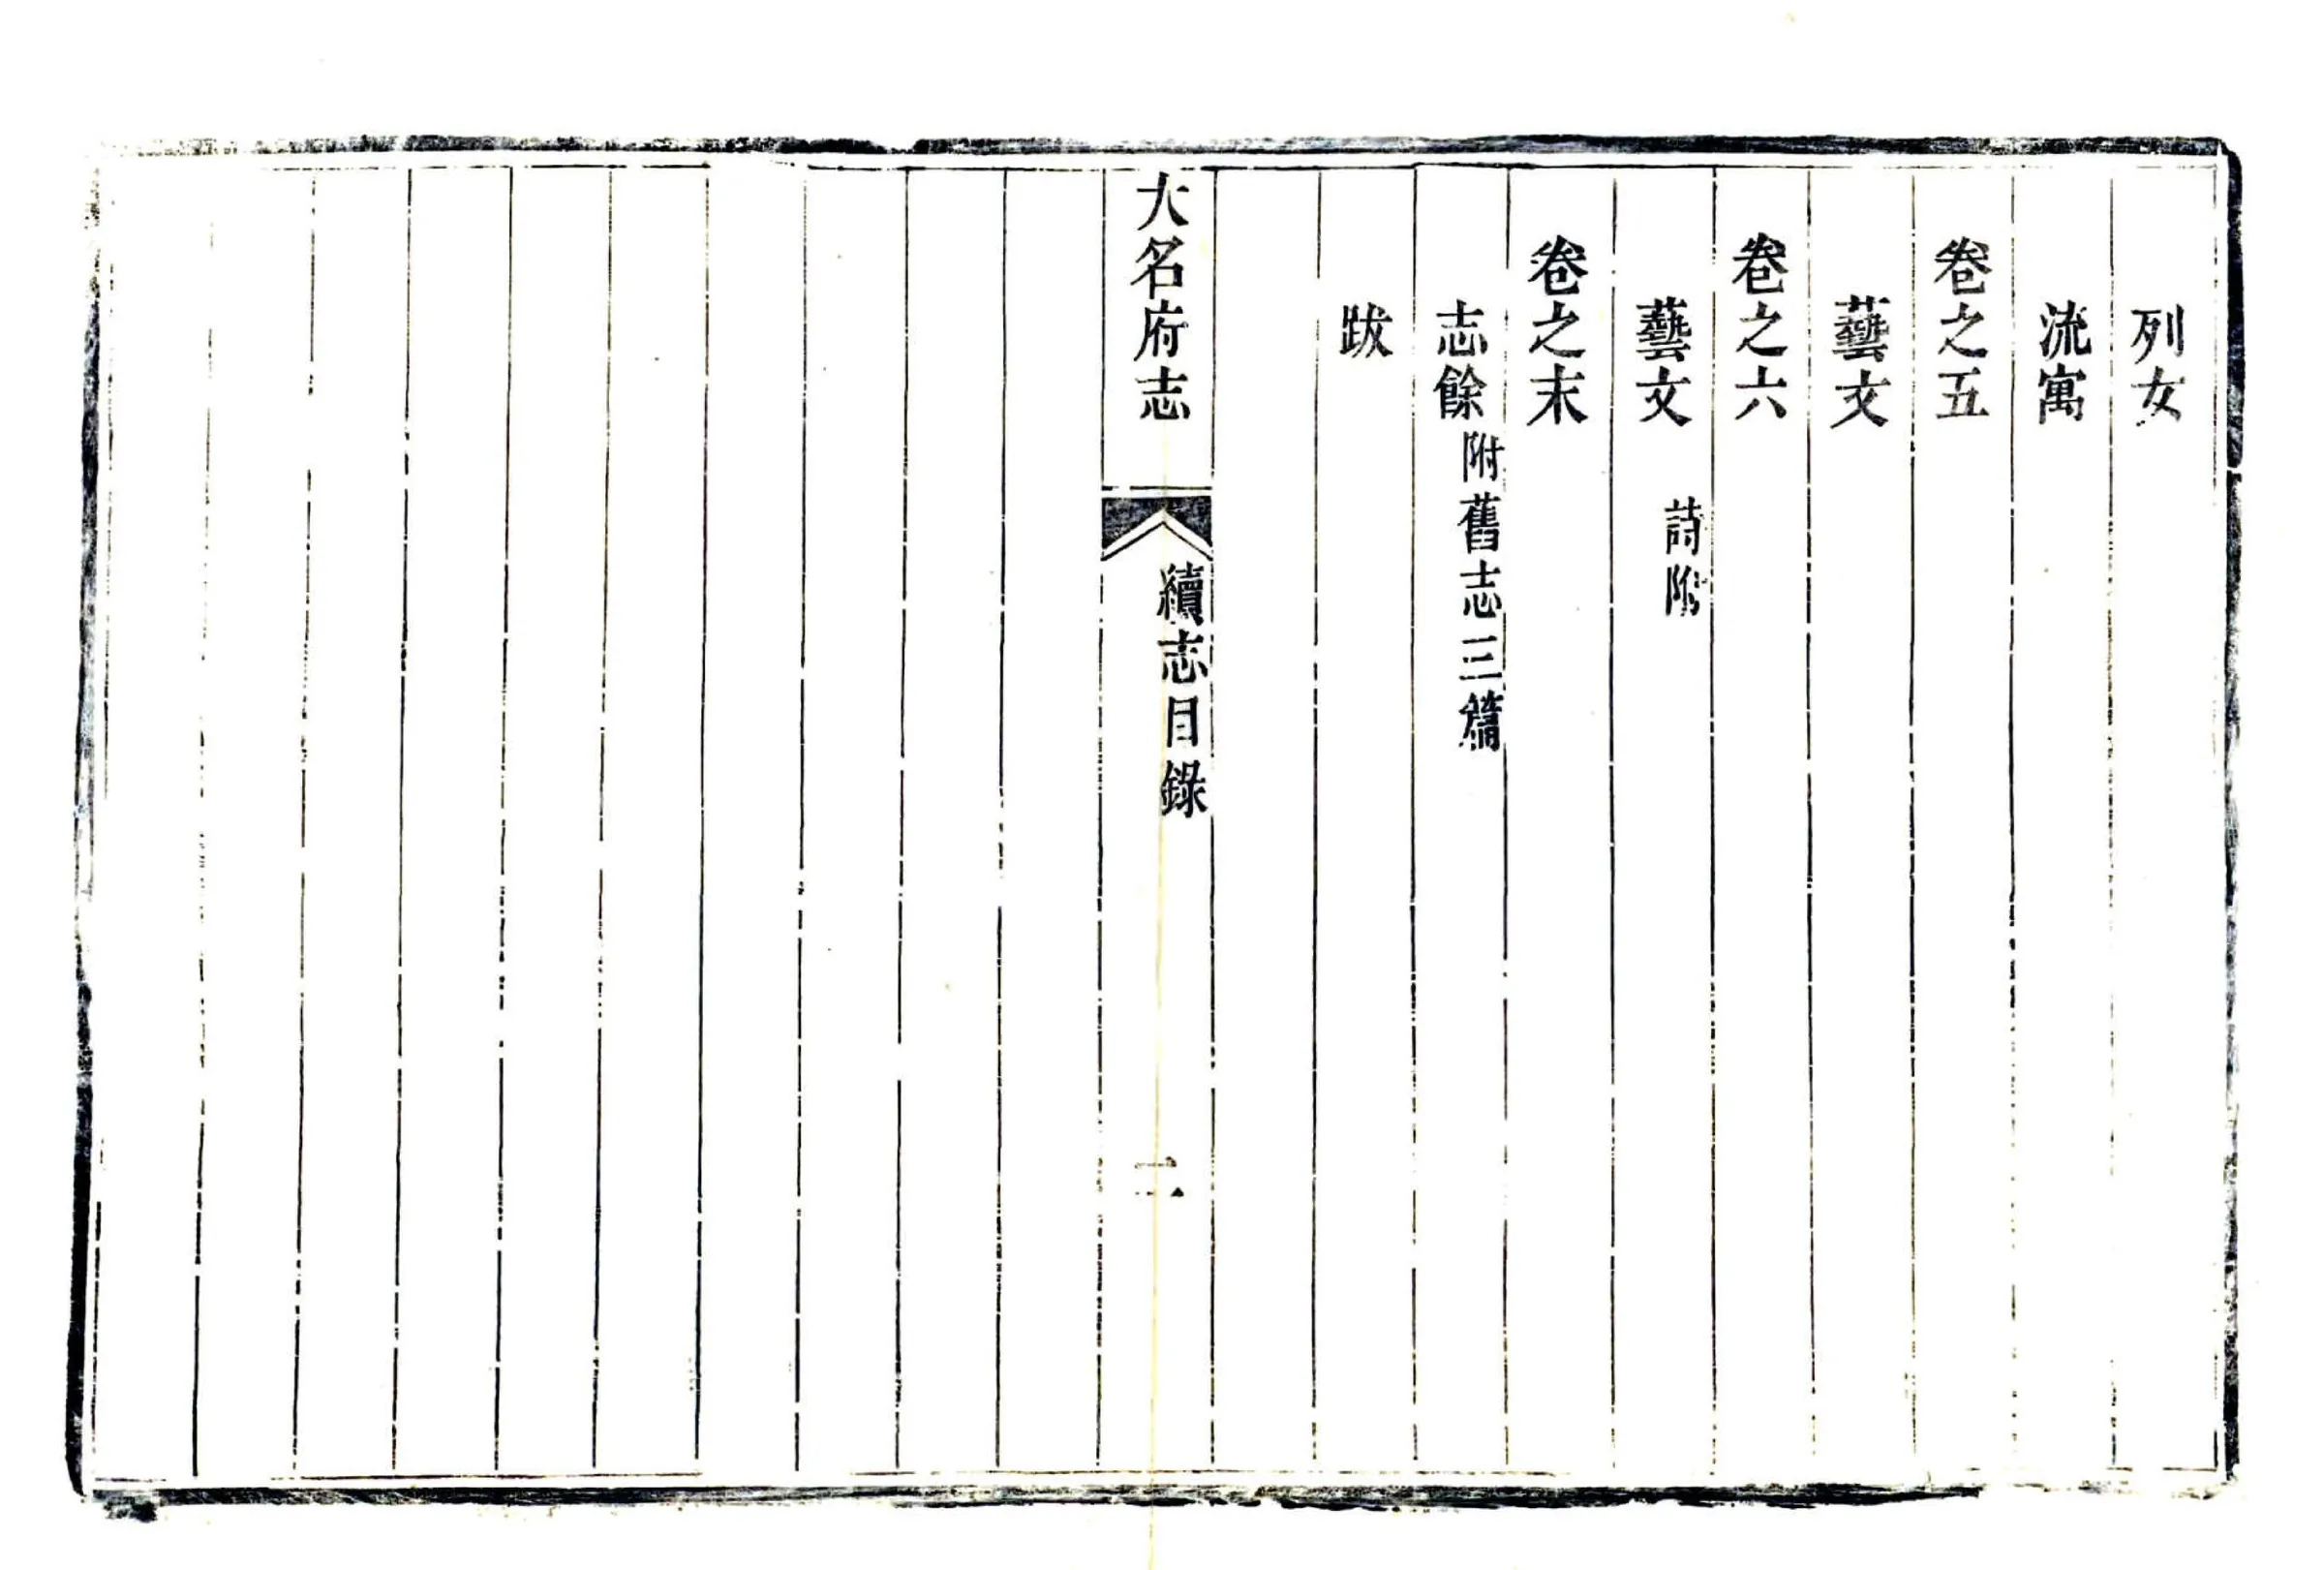 列女
流寓
卷之五
藝文
卷之六
藝文 詩附
卷之末
志餘附舊志三篇
跋
大名府志
續志目錄
二